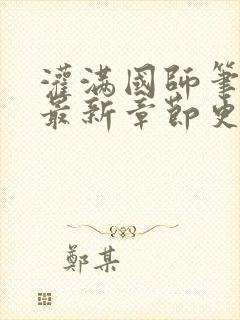 灌满國師筆
最新章節史
鄭某